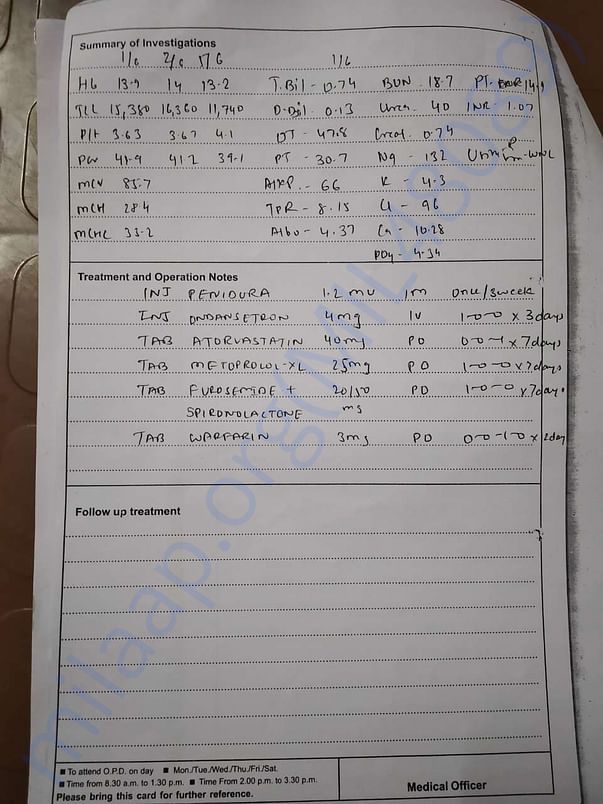 Summary of Investigations
1/6 2/6 5/6 1/6
Hb 13.9 14 13.2 T.Bil - 0.74 BUN - 18.7 PT.
TLC 15,380 16,360 11,740 D.Bil - 0.13 Urea 40 INR 1.07
Plt 3.63 3.67 4.1 OT - 47.8 Creat. 0.74
PCV 41.9 41.2 39.1 PT - 30.7 Na - 132 - WNL
MCV 85.7 AlkP. - 66 K - 4.3
MCH 28.4 TPR - 8.15 Cl - 96
MCHC 33.2 Albu - 4.37 Ca - 10.28
PO4 - 4.34
Treatment and Operation Notes
INJ PENIDURA 1.2 MU IM Once/3 week
INJ ONDANSETRON 4mg IV 1-0-0 x 3 days
TAB ATORVASTATIN 40mg PO 0-0-1 x 7 days
TAB METOPROLOL-XL 25mg PO 1-0-0 x 7 days
TAB FUROSEMIDE + 20/50 PO 1-0-0 x 7 days
SPIRONOLACTONE mg
TAB WARFARIN 3mg PO
Follow up treatment
■ To attend O.P.D. on day ■ Mon./Tue./Wed./Thu./Fri./Sat.
■ Time from 8.30 a.m. to 1.30 p.m. ■ Time From 2.00 p.m. to 3.30 p.m.
Please bring this card for further reference.
Medical Officer
milaap.org